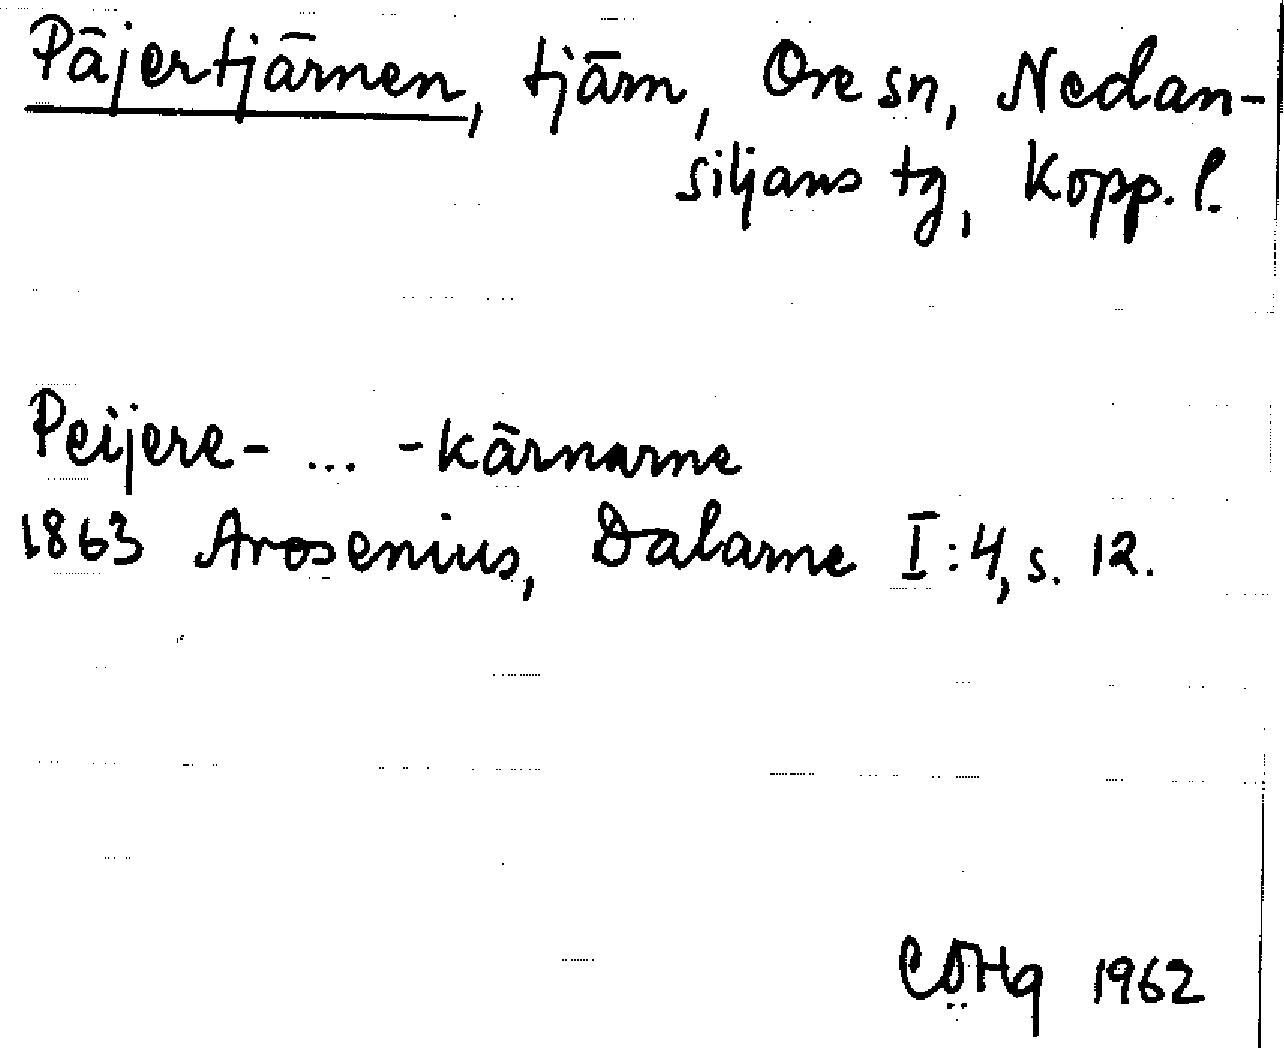 Päjertjärnen, tjärn, Ore sn, Nedan-
siljans tg, Kopp. l.
Peijere- ... -kärnarne
1863 Arosenius, Dalarne I:4, s. 12.
CÖHg 1962